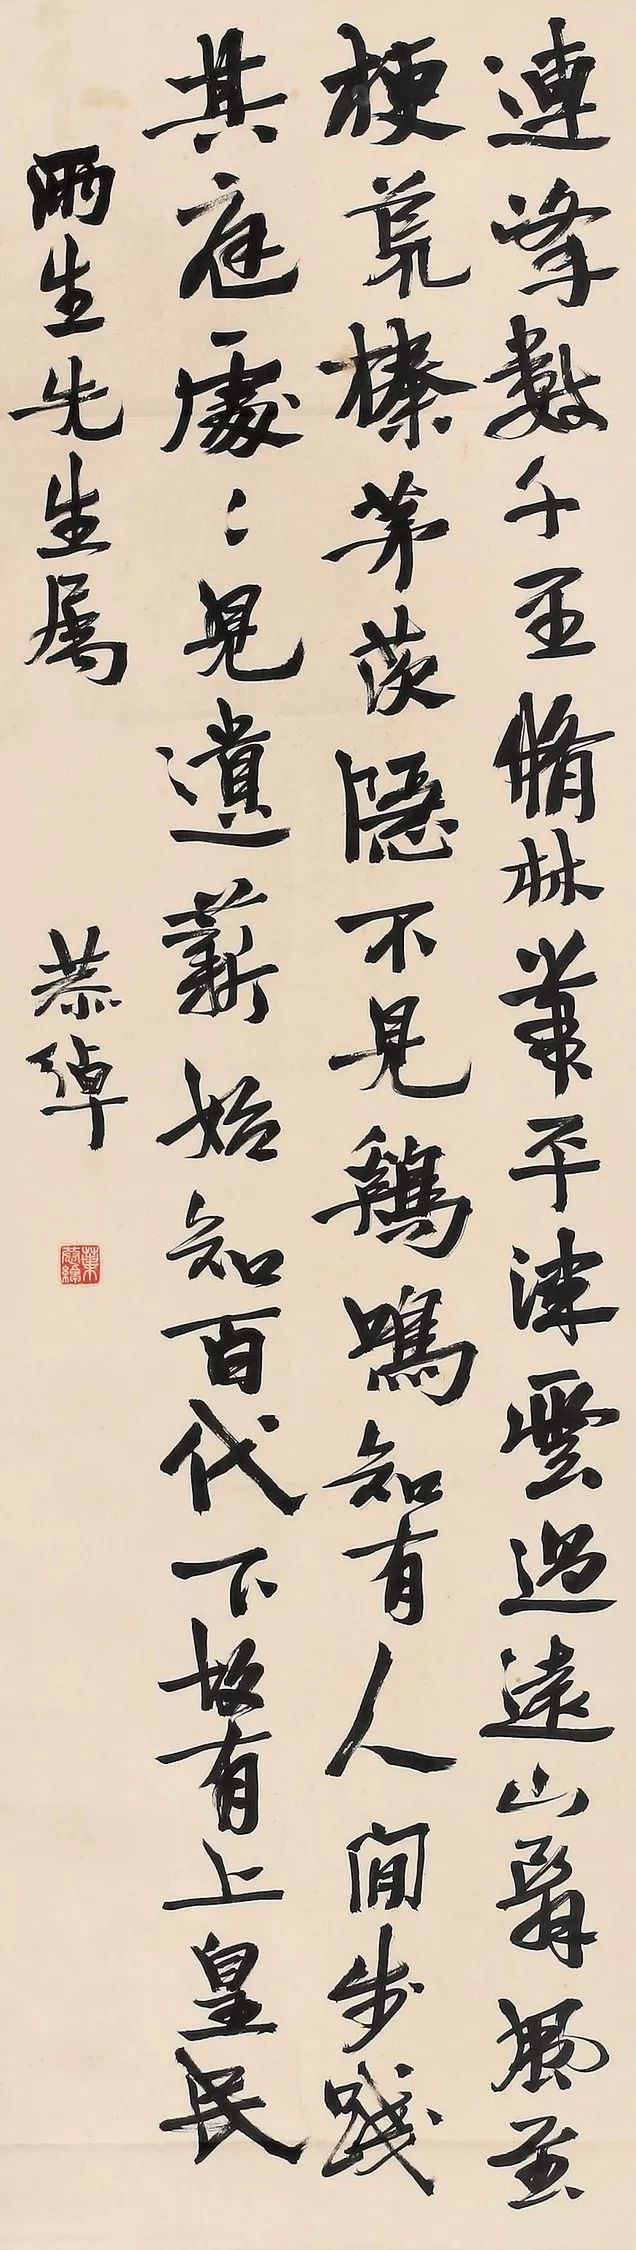 連峯數千里脩林帶平津雲過遠山翳風至
梗荒榛茅茨隱不見鷄鳴知有人閒步踐
其庭處〻見遺薪始知百代下故有上皇民
兩生先生屬
恭綽
葉恭綽